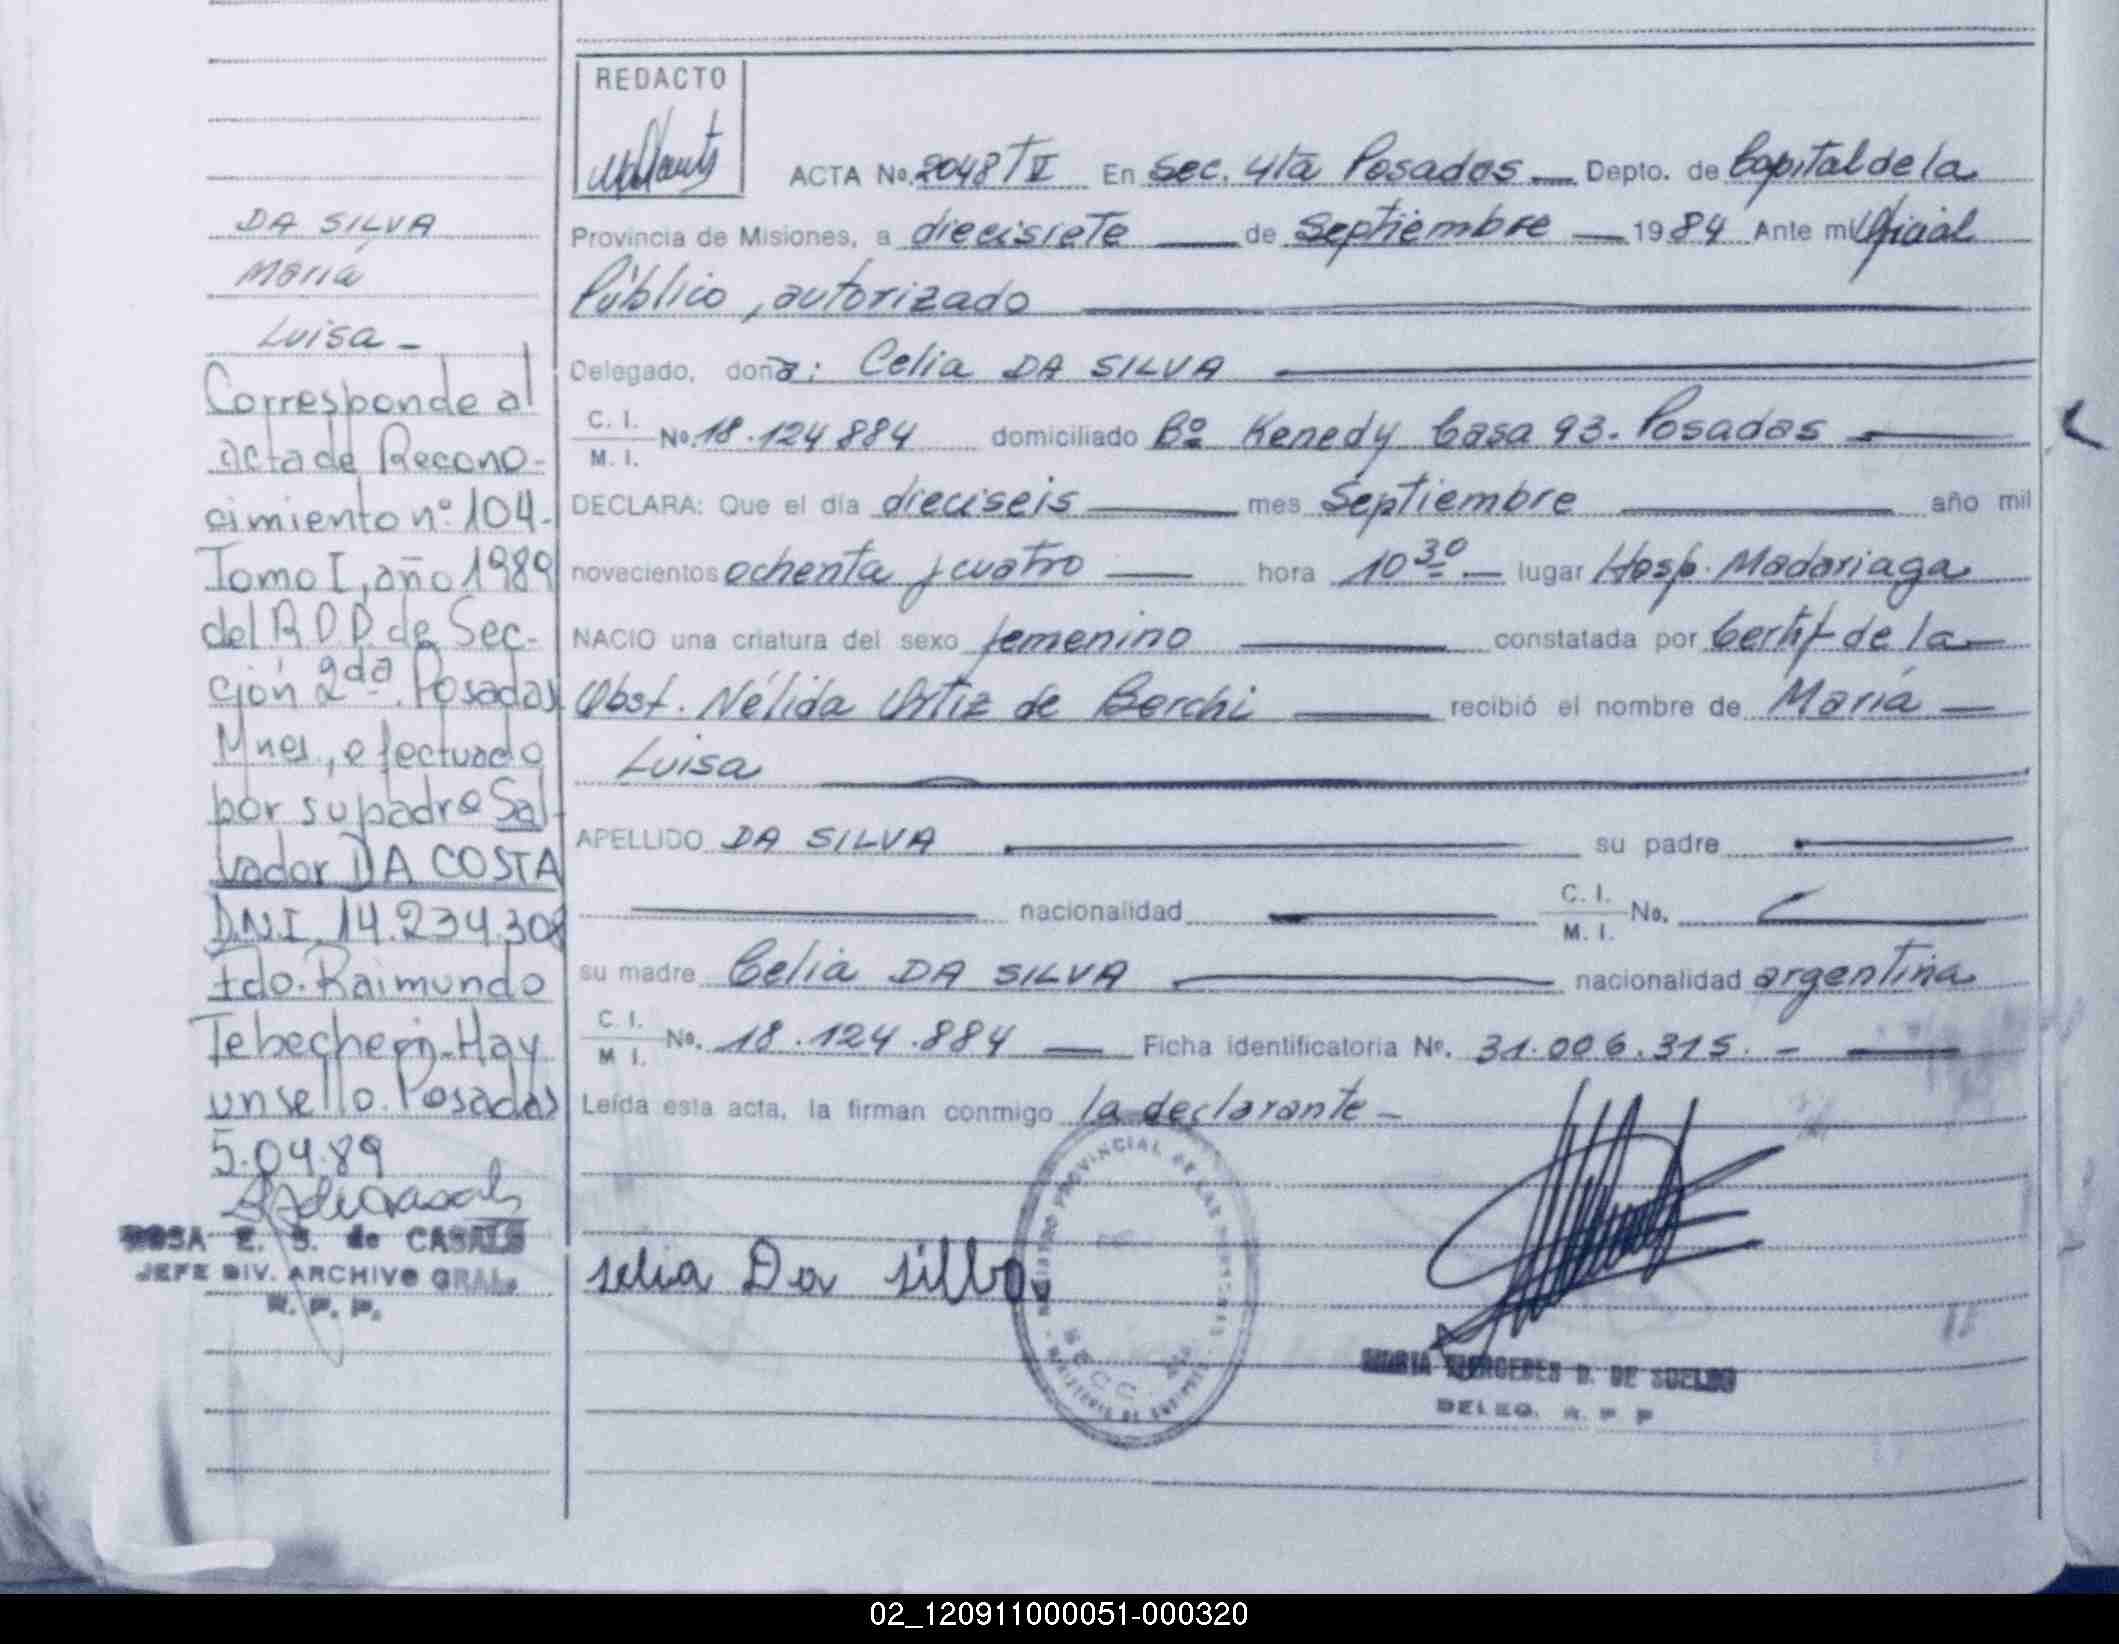 REDACTO
ACTA No. 2048 T V En Sec. 4ta Posadas Depto. de Capital de la
Provincia de Misiones, a diecisiete de Septiembre 1984 Ante mi Oficial
Público, autorizado
Delegado, doña: Celia DA SILVA
C. I.
M. I. No. 18.124.884 domiciliado Bº Kenedy Casa 93. Posadas
DECLARA: Que el día dieciseis mes Septiembre año mil
novecientos ochenta y cuatro hora 10 30 lugar Hosp. Madariaga
NACIO una criatura del sexo femenino constatada por Certif de la
Obst. Nélida Ortiz de Berchi recibió el nombre de María
Luisa
APELLIDO DA SILVA su padre
nacionalidad C. I.
M. I. No.
su madre Celia DA SILVA nacionalidad argentina
C. I.
M I. No. 18.124.884 Ficha identificatoria No. 31.006.315.-
Leída esta acta, la firman conmigo la declarante-
selia Da silva
REGISTRO PROVINCIAL DE LAS PERSONAS
SECC. 4ta
MARIA MERCEDES D. DE SUELDO
DELEG. R. P P
DA SILVA
María
Luisa -
Corresponde al
acta de Recono-
cimiento nº 104-
Tomo I, año 1989
del R.D.P. de Sec-
ción 2da. Posadas
Mnes., efectuado
por su padre Sal-
vador DA COSTA
D.N.I. 14.234.308
fdo. Raimundo
Tebechein. Hay
un sello. Posadas
5.04.89
ROSA E. S. de CASALS
JEFE DIV. ARCHIVO GRAL.
R. P. P.
02_120911000051-000320